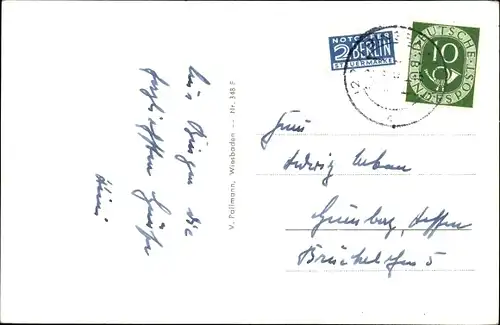 NOTOPFER
2 BERLIN
STEUERMARKE
DEUTSCHE
BUNDESPOST
10
Aus Bingen die
herzlichsten Grüße
V. Pallmann, Wiesbaden — Nr. 348 F
Ludwig Urban
Grünberg, Hessen
5